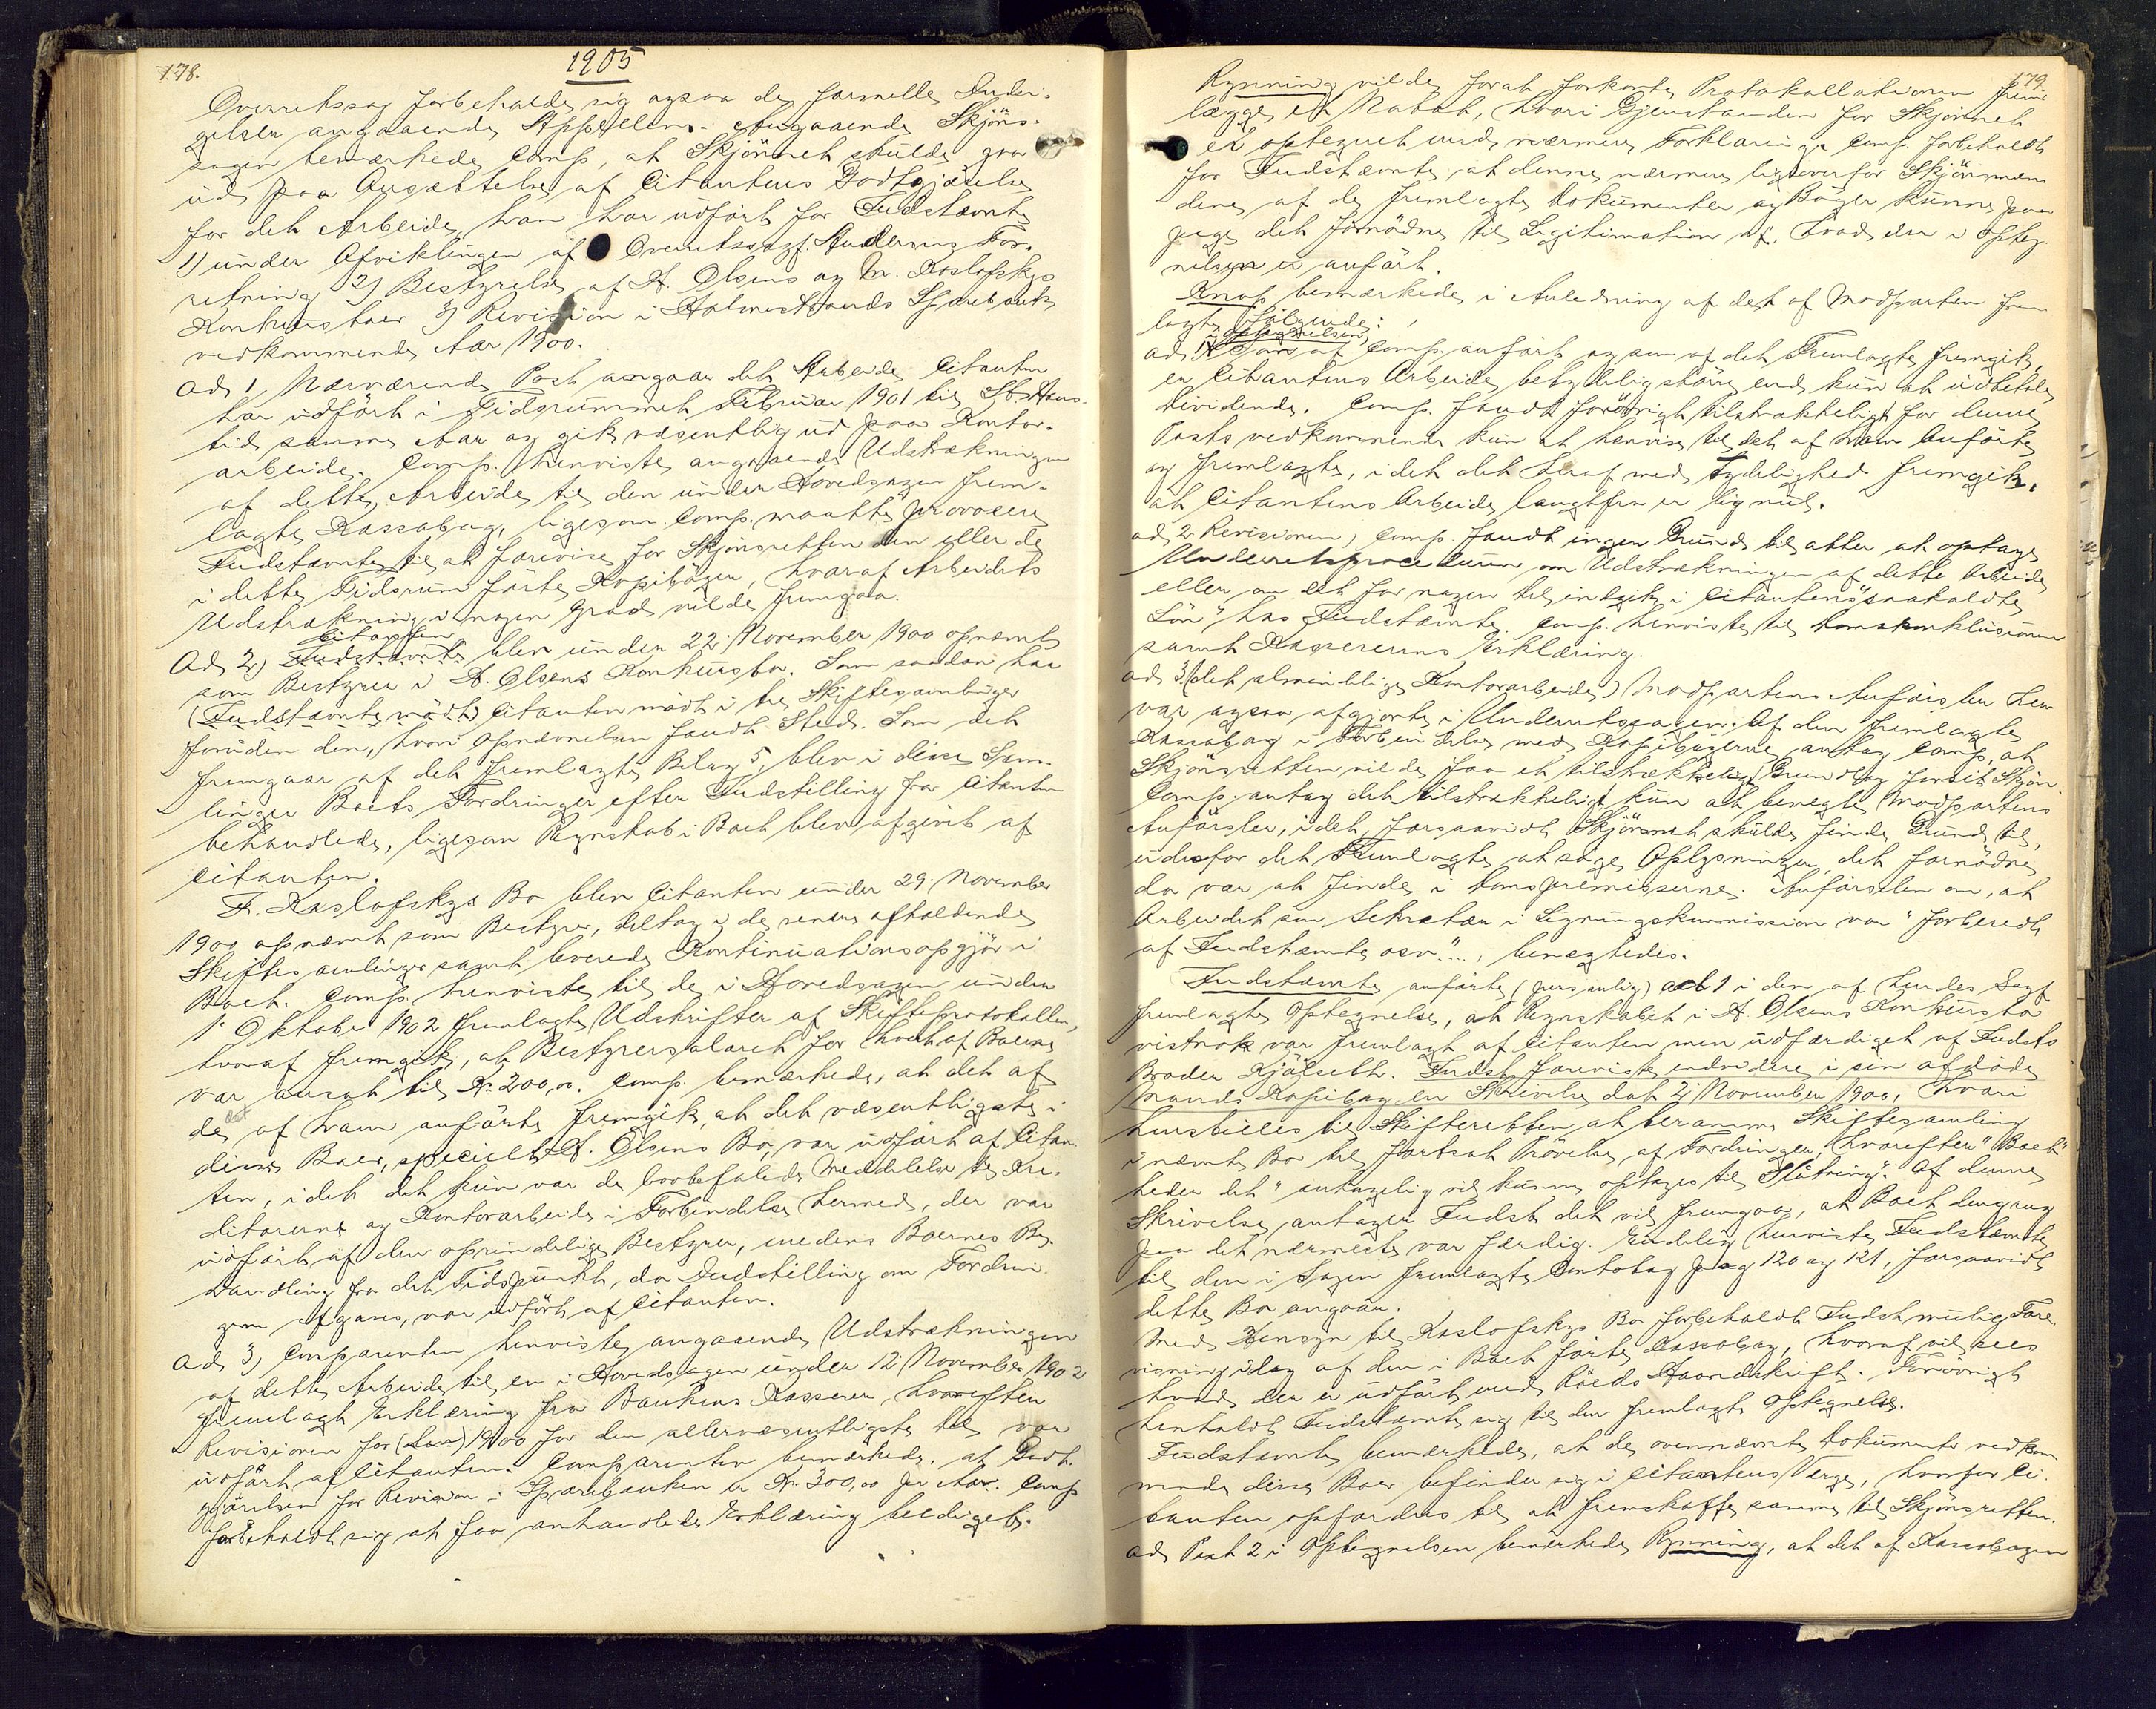 178.
1905
Overretssag forbeholdes sig ogsaa de formelle Indsi-
gelser angaaende Appellen. Angaaende Skjöns-
sagen bemærkede Comp, at Skjönnet skulde gaa
ud paa Ansættelse af Citantens Godtgjörelse
for det Arbeide, han har udfört for Indstævnte
1) under Afviklingen af Overretssagf. Andersens For-
retning 2) Bestyrelse af A. Olsens og M. Koslofskys
Konkursboer 3) Revision i Holmestrands Sparebank
vedkommende Aar 1900.
Ad 1, Nærværende Post angaar det Arbeide Citanten
har udfört i Tidsrummet Februar 1901 til St. Hans-
tid samme Aar og gik væsentlig ud paa Kontor-
arbeide. Comp. henviste angaaende Udstrækningen
af dette Arbeide til den under Hovedsagen frem-
lagte Kassabog, ligesom Comp. maatte provocere
Indstævnte til at forevise for Skjönsretten den eller de
i dette Tidsrum förte Kopibøger, hvoraf Arbeidets
Udstrækning i nogen Grad vilde fremgaa.
Citanten
Ad 2) Indstævnte blev under 22. November 1900 opnævnt
som Bestyrer i A. Olsens Konkursbo. Som saadan har
(Indstævnte mödt) Citanten mödt i tre Skiftesamlinger
foruden den, hvori Opnævnelsen fandt Sted. Som det
fremgaar af det fremlagte Bilag 5, blev i disse Sam-
linger Boets Fordringer efter Indstilling fra Citanten
behandlede, ligesom Regnskab i Boet blev afgivet af
Citanten.
F. Koslofskys Bo blev Citanten under 29. November
1900 opnævnt som Bestyrer, deltog i de senere afholdende
Skiftesamlinger samt leverede Kontinuationsopgjör i
Boet. Comp. henviste til de i Hovedsagen under
1. Oktober 1902 fremlagte Udskrifter af Skifteprotokollen,
hvoraf fremgik, at Bestyrersalæret for hvert af Boerne
var ansat til Kr. 200,00. Comp. bemærkede, at det af
det af ham anförte fremgik, at det væsentligste i
disse Boer, specielt A. Olsens Bo, var udfört af Citan-
ten, idet det kun var de lovbefalede Meddelelser til Kre-
ditorerne og Kontorarbeide i Forbindelse hermed, der var
udfört af den oprindelige Bestyrer, medens Boernes Be-
handling fra det Tidspunkt, da Indstilling om Fordrin-
gerne afgaves, var udfört af Citanten.
Ad 3, Comparenten henviste angaaende Udstrækningen
af dette Arbeide til en i Hovedsagen under 12 November 1902
fremlagt Erklæring fra Bankens Kasserer, hvorefter
Revisionen for 1900 for den allervæsentligste Del var
udfört af Citanten. Comparenten bemærkede, at Godt-
gjörelsen for Revision i Sparebanken er Kr. 300,00 pr Aar. Comp
forbeholdt sig at faa anhandlede Erklæring beediget.
179.
Rynning vilde, forat forkorte Protokollationen frem-
lægge et Notat, hvori Gjenstanden for Skjönnet
er optegnet med nærmere Forklaring. Comp. forbeholdt
for Indstævnte, at denne nærmere ligeoverfor Skjönsmæn-
dene af de fremlagte Dokumenter og Böger kunne paa-
pege det fornödne til Legitimation af, hvad der i Opteg-
nelsen er anfört.
Knap bemærkede i Anledning af det af Modparten frem-
lagte, fölgende:
Optegnelsen
ad 1, Som af Comp. anfört og som af det Fremlagte fremgik,
er Citantens Arbeide betydelig större end kun at udbetale
Dividende. Comp. fandt forövrigt tilstrækkeligt for denne
Posts vedkommende kun at henvise til det af ham Anförte
og fremlagte, idet det heraf med Tydelighed fremgik,
at Citantens Arbeide langtfra er lig nul.
ad 2 Revisionen, Comp. fandt ingen Grund til atter at optage
Underretsproceduren om Udstrækningen af dette Arbeide
eller om det for nogen Del indgik i Citantens "saakaldte
Lön" hos Indstævnte. Comp. henviste til Domskonklusionen
samt Kassererens Erklæring.
ad 3 (det almindelige Kontorarbeide) Modpartens Anförsler her
var ogsaa afgjorte i Underretssagen. Af den fremlagte
Kassabog i Forbindelse med Kopibögerne antog Comp, at
Skjönsretten vilde faa et tilstrækkelig Grundlag for sit Skjön.
Comp. antog det tilstrækkeligt kun at benegte Modpartens
Anförsler, idet, forsaavidt Skjönnet skulde finde Grund til,
udenfor det Fremlagte, at söge Oplysninger, det fornödne
da var at finde i Domspræmisserne. Anförselen om, at
Arbeidet som Sekretær i Ligningskommission var "forberedt
af Indstævnte osv"...., benegtedes.
Indstævnte anförte (personlig) ad 1 i den af hendes Sagf
fremlagte Optegnelse, at Regnskabet i A. Olsens Konkursbo
vistnok var fremlagt af Citanten men udfærdiget af Indsts
Broder Kjölseth. Indst foreviste endvidere i sin afdöde
Mands Kopibog en Skrivelse dat 2/ November 1900, hvori
henstilles til Skifteretten at beramme Skiftesamling
i nævnte Bo til fortsat Prövelse af Fordringer, hvorefter "Boet"
heder det "antagelig vil kunne optages til Slutning". Af denne
Skrivelse antager Indst det vil fremgaa, at Boet dengang
paa det nærmeste var færdig. Endelig henviste Indstævnte
til den i Sagen fremlagte Contobog pag 120 og 121, forsaavidt
dette Bo angaar.
Med Hensyn til Koslofskys Bo forbeholdt Indst mulig Fore-
visning idag af den i Boet förte Kassabog, hvoraf vil sees
hvad der er udfört med Röeds Haandskrift. Forövrigt
henholdt Indstævnte sig til den fremlagte Optegnelse.
Indstævnte bemærkede, at de ovennævnte Dokumenter vedkom-
mende disse Boer befinder sig i Citantens Verge, hvorfor Ci-
tanten opfordres til at fremskaffe samme til Skjönsretten.
ad Post 2 i Optegnelsen bemerkede Rynning, at det af Kassabogen